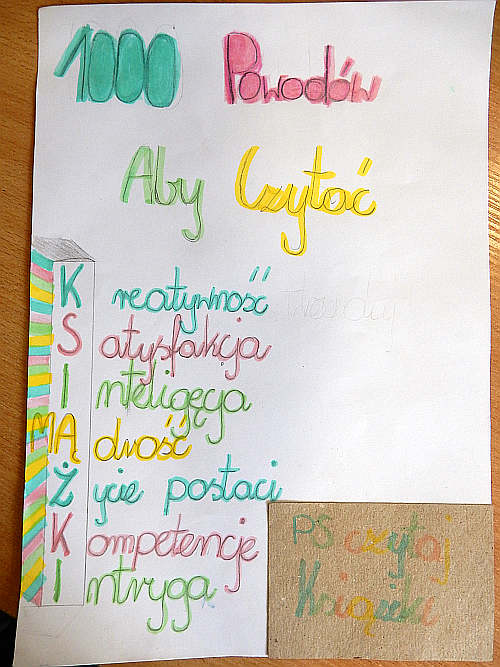 1000 Powodów
Aby Czytać
Kreatywność
Satysfakcja
Inteligęcja
MĄdrość
Życie postaci
Kompetencje
Intryga
PS czytaj
Książki